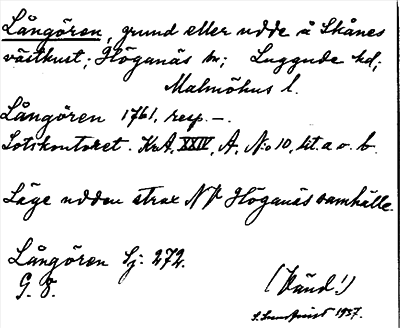 Långören, grund eller udde å Skånes
västkust; Höganäs sn; Luggude hd;
Malmöhus l.
Långören 1761, resp. –.
Lotskontoret. KrA, XXIV, A, No 10, lit. a o. b.
Läge udden strax NV Höganäs samhälle.
Långören Sj: 272.
G. S.
(Känd!)
1937.